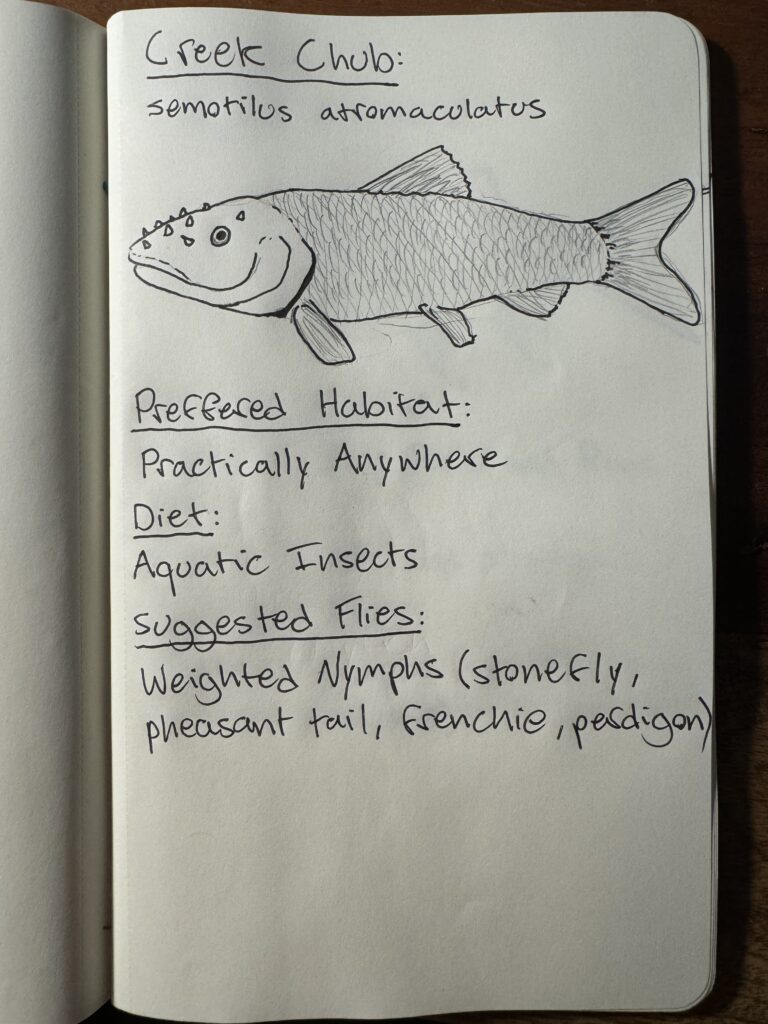 Creek Chub:
semotilus atromaculatus
Preffered Habitat:
Practically Anywhere
Diet:
Aquatic Insects
Suggested Flies:
Weighted Nymphs (stonefly,
pheasant tail, frenchie, perdigon)